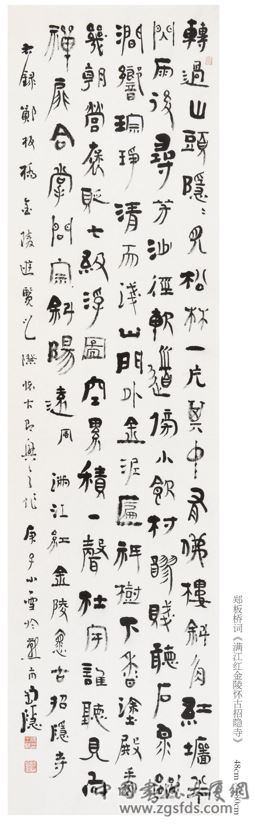 轉過山頭隱〻見松林一片其中有佛樓斜角紅墻半
閃雨後尋芳沙徑軟道傍小飲村醪賤聽石泉幽
澗響琮琤清而淺山門外金泥匾祇樹下香塗殿
幾朝營褒貶七級浮圖空累積一聲杜宇誰聽見向
禪扉合掌問宗斜陽遠 風 滿江紅金陵懷古招隱寺
右錄鄭板橋金陵 懷古 之作 庚子小雪於
郑板桥词《满江红金陵怀古招隐寺》
www.zgsfds.com